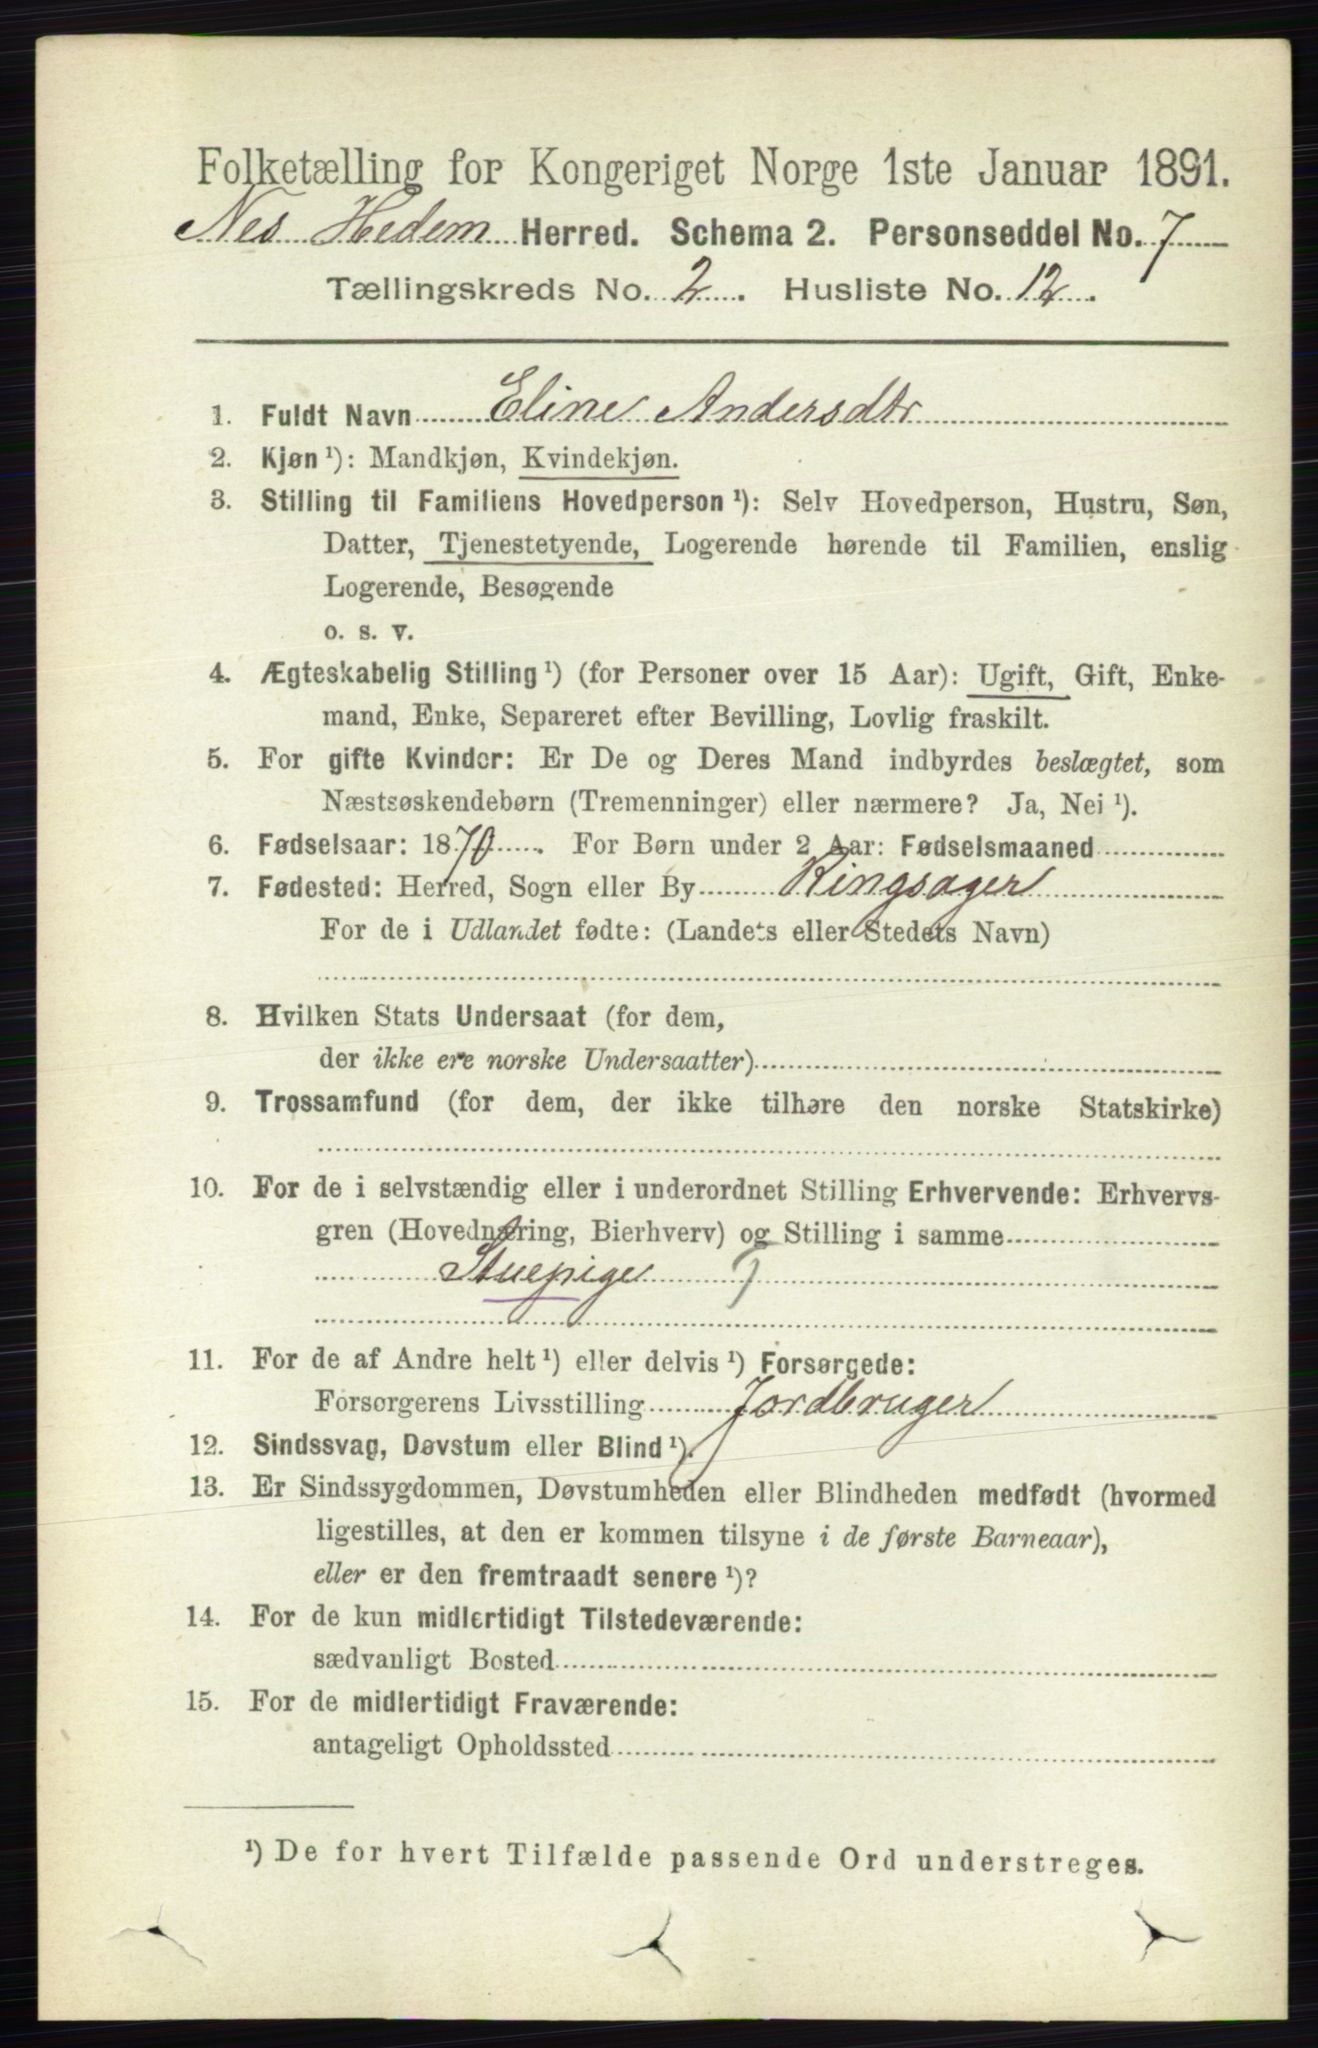 Folketælling for Kongeriget Norge 1ste Januar 1891.
Nes Hedem Herred. Schema 2. Personseddel No. 7
Tællingskreds No. 2. Husliste No. 12.
1. Fuldt Navn Eline Andersdtr
2. Kjøn ¹): Mandkjøn, Kvindekjøn.
3. Stilling til Familiens Hovedperson ¹): Selv Hovedperson, Hustru, Søn,
Datter, Tjenestetyende, Logerende hørende til Familien, enslig
Logerende, Besøgende
o. s. v.
4. Ægteskabelig Stilling ¹) (for Personer over 15 Aar): Ugift, Gift, Enke-
mand, Enke, Separeret efter Bevilling, Lovlig fraskilt.
5. For gifte Kvinder: Er De og Deres Mand indbyrdes beslægtet, som
Næstsøskendebørn (Tremenninger) eller nærmere? Ja, Nei ¹).
6. Fødselsaar: 1870. For Børn under 2 Aar: Fødselsmaaned
7. Fødested: Herred, Sogn eller By Ringsager
For de i Udlandet fødte: (Landets eller Stedets Navn)
8. Hvilken Stats Undersaat (for dem,
der ikke ere norske Undersaatter)
9. Trossamfund (for dem, der ikke tilhøre den norske Statskirke)
10. For de i selvstændig eller i underordnet Stilling Erhvervende: Erhvervs-
gren (Hovednæring, Bierhverv) og Stilling i samme
Stuepige T
11. For de af Andre helt ¹) eller delvis ¹) Forsørgede:
Forsørgerens Livsstilling Jordbruger
12. Sindssvag, Døvstum eller Blind ¹).
13. Er Sindssygdommen, Døvstumheden eller Blindheden medfødt (hvormed
ligestilles, at den er kommen tilsyne i de første Barneaar),
eller er den fremtraadt senere ¹)?
14. For de kun midlertidigt Tilstedeværende:
sædvanligt Bosted
15. For de midlertidigt Fraværende:
antageligt Opholdssted
¹) De for hvert Tilfælde passende Ord understreges.